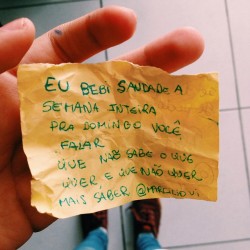 EU BEBI SAUDADE A
SEMANA INTEIRA
PRA DOMINGO VOCÊ
FALAR
QUE NÃO SABE O QUE
QUER E QUE NÃO QUER
MAIS SABER